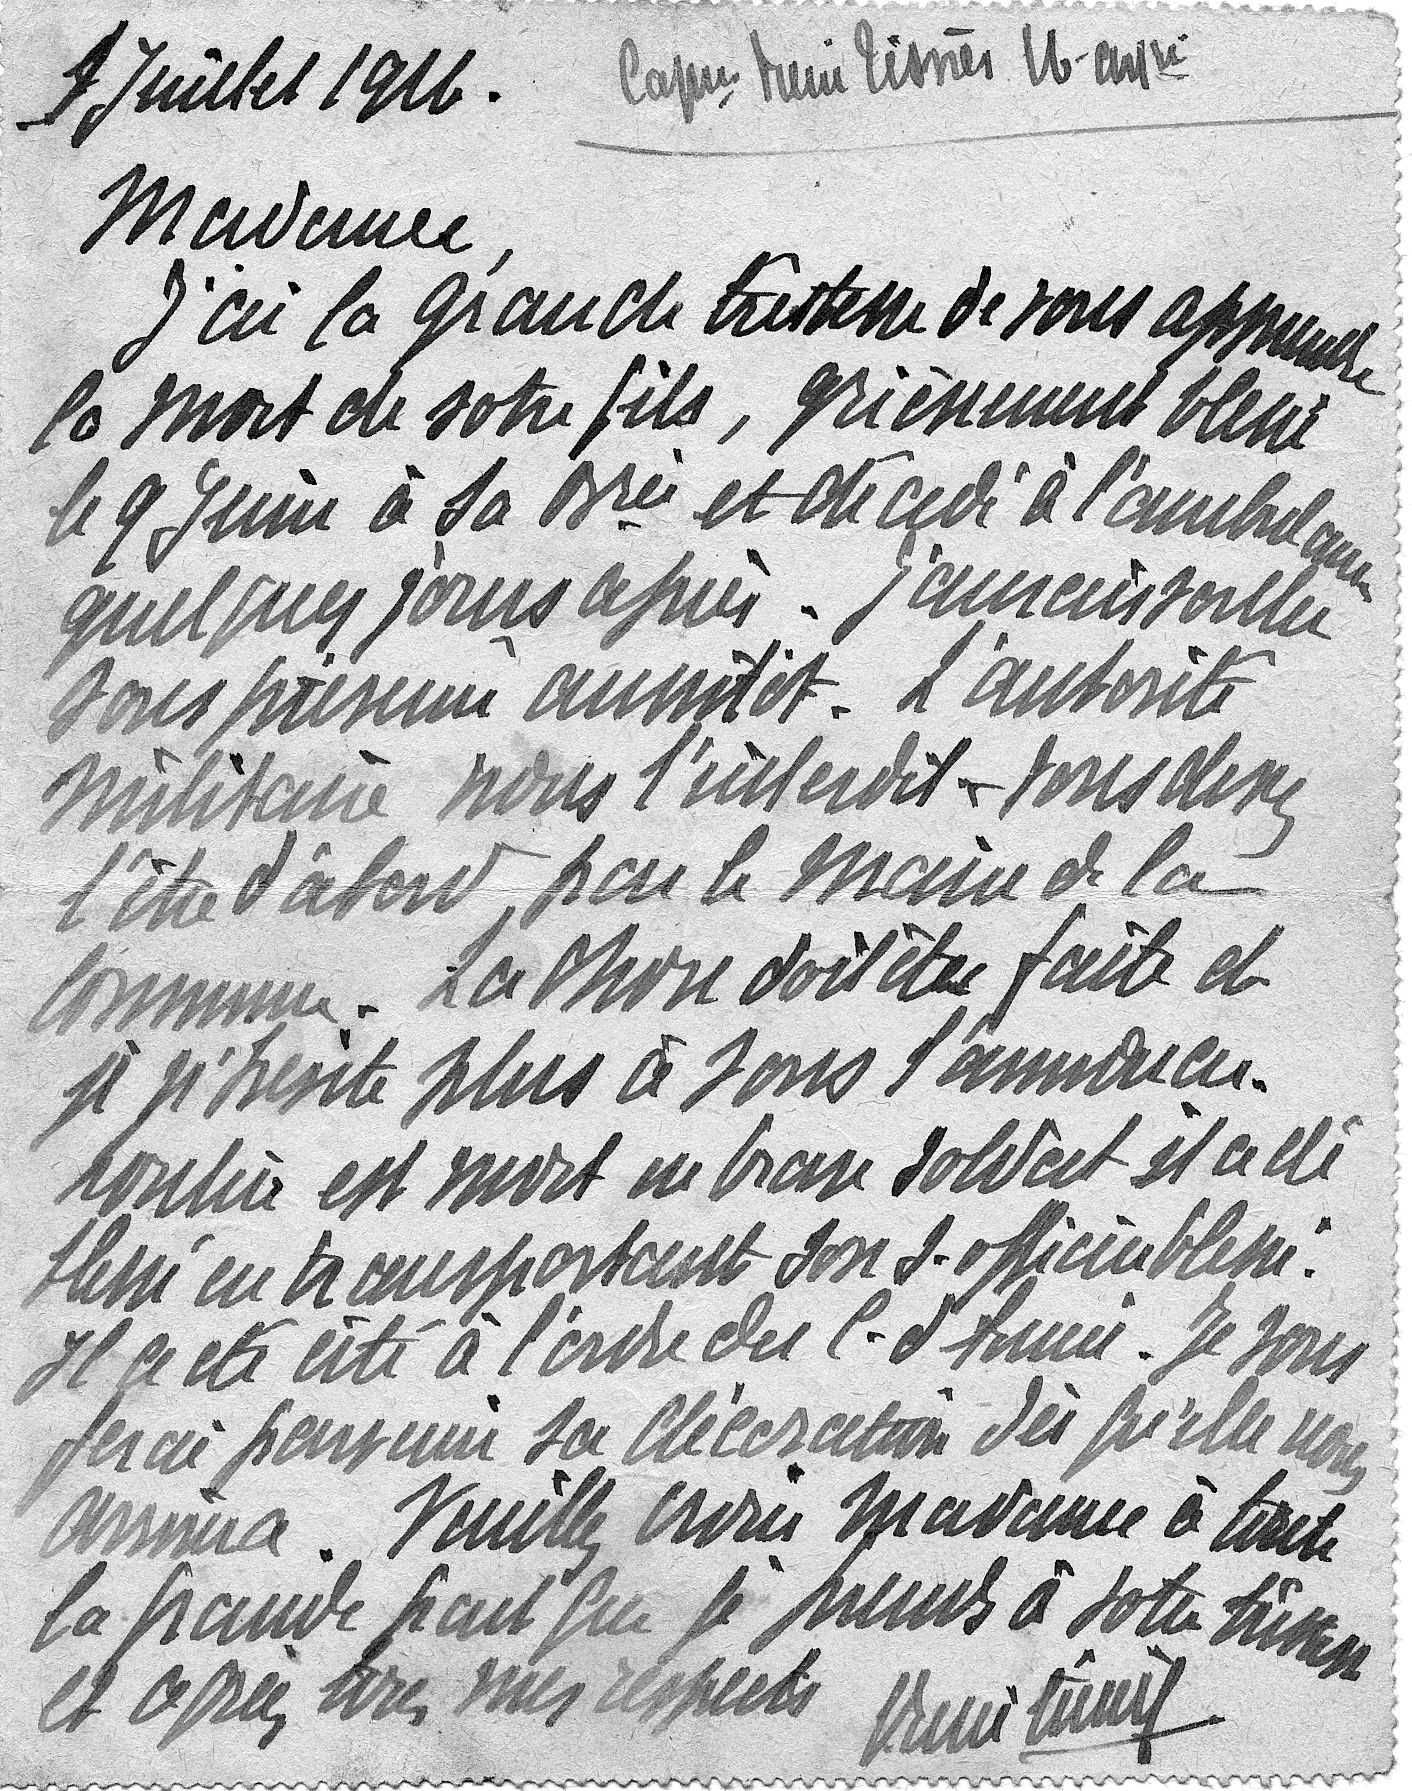 7 Juillet 1916.
Madame,
J'ai la grande tristesse de vous apprendre
la mort de votre fils, grièvement blessé
le 9 Juin à sa et décédé à l'ambulance
quelques jours après. J'aurais voulu
vous prévenir aussitôt. L'autorité
militaire nous l'interdit - vous devez
l'être d'abord par le maire de la
commune. La chose doit être faite et
je n'hésite plus à vous l'annoncer.
est mort en brave soldat il a été
blessé en transportant son s-officier blessé.
Il a été cité à l'ordre du C. d'Armée. Je vous
ferai parvenir sa décoration dès qu'elle nous
arrivera. Veuillez croire Madame à toute
la grande part que je prends à votre tristesse
et agréez mes respects